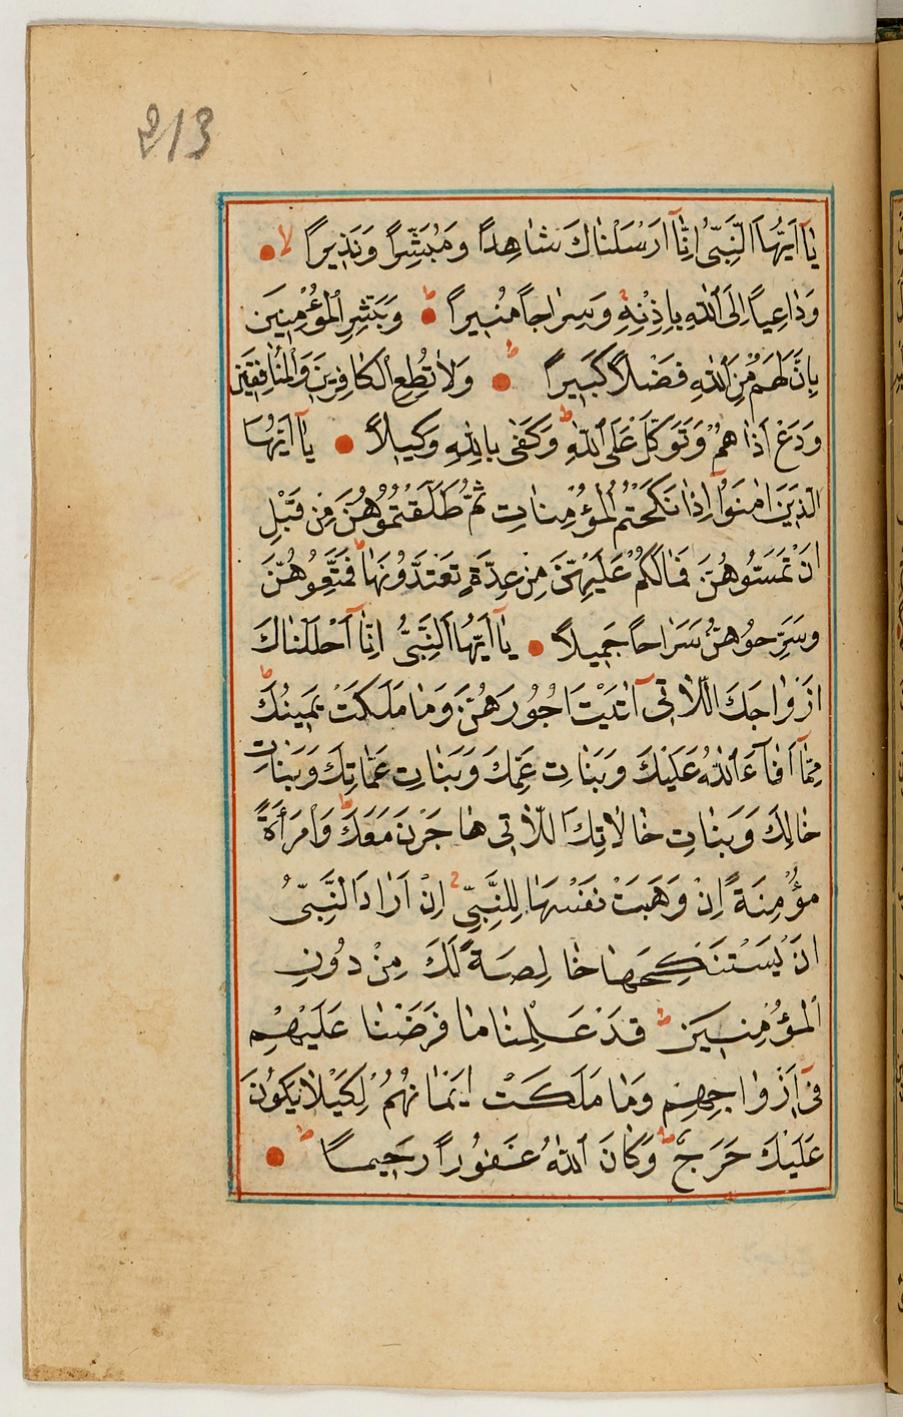 213
يَا اَيُّهَا النَّبِيُّ اِنَّا اَرْسَلْنَاكَ شَاهِدًا وَمُبَشِّرًا وَنَذِيرًا لا
وَدَاعِيًا اِلَى اللّٰهِ بِاِذْنِهِ وَسِرَاجًا مُنِيرًا ط وَبَشِّرِ الْمُؤْمِنِينَ
بِاَنَّ لَهُمْ مِنَ اللّٰهِ فَضْلًا كَبِيرًا ط وَلَا تُطِعِ الْكَافِرِينَ وَالْمُنَافِقِينَ
وَدَعْ اَذَاهُمْ وَتَوَكَّلْ عَلَى اللّٰهِ ط وَكَفٰى بِاللّٰهِ وَكِيلًا يَا اَيُّهَا
الَّذِينَ اٰمَنُوا اِذَا نَكَحْتُمُ الْمُؤْمِنَاتِ ثُمَّ طَلَّقْتُمُوهُنَّ مِنْ قَبْلِ
اَنْ تَمَسُّوهُنَّ فَمَا لَكُمْ عَلَيْهِنَّ مِنْ عِدَّةٍ تَعْتَدُّونَهَا ط فَمَتِّعُوهُنَّ
وَسَرِّحُوهُنَّ سَرَاحًا جَمِيلًا يَا اَيُّهَا النَّبِيُّ اِنَّا اَحْلَلْنَا لَكَ
اَزْوَاجَكَ اللَّاتِي اٰتَيْتَ اُجُورَهُنَّ وَمَا مَلَكَتْ يَمِينُكَ ط
مِمَّا اَفَاءَ اللّٰهُ عَلَيْكَ وَبَنَاتِ عَمِّكَ وَبَنَاتِ عَمَّاتِكَ وَبَنَاتِ
خَالِكَ وَبَنَاتِ خَالَاتِكَ اللَّاتِي هَاجَرْنَ مَعَكَ ط وَامْرَاَةً
مُؤْمِنَةً اِنْ وَهَبَتْ نَفْسَهَا لِلنَّبِيِّ اِنْ اَرَادَ النَّبِيُّ
اَنْ يَسْتَنْكِحَهَا خَالِصَةً لَكَ مِنْ دُونِ
الْمُؤْمِنِينَ ط قَدْ عَلِمْنَا مَا فَرَضْنَا عَلَيْهِمْ
فِي اَزْوَاجِهِمْ وَمَا مَلَكَتْ اَيْمَانُهُمْ لِكَيْلَا يَكُونَ
عَلَيْكَ حَرَجٌ ط وَكَانَ اللّٰهُ غَفُورًا رَحِيمًا ط